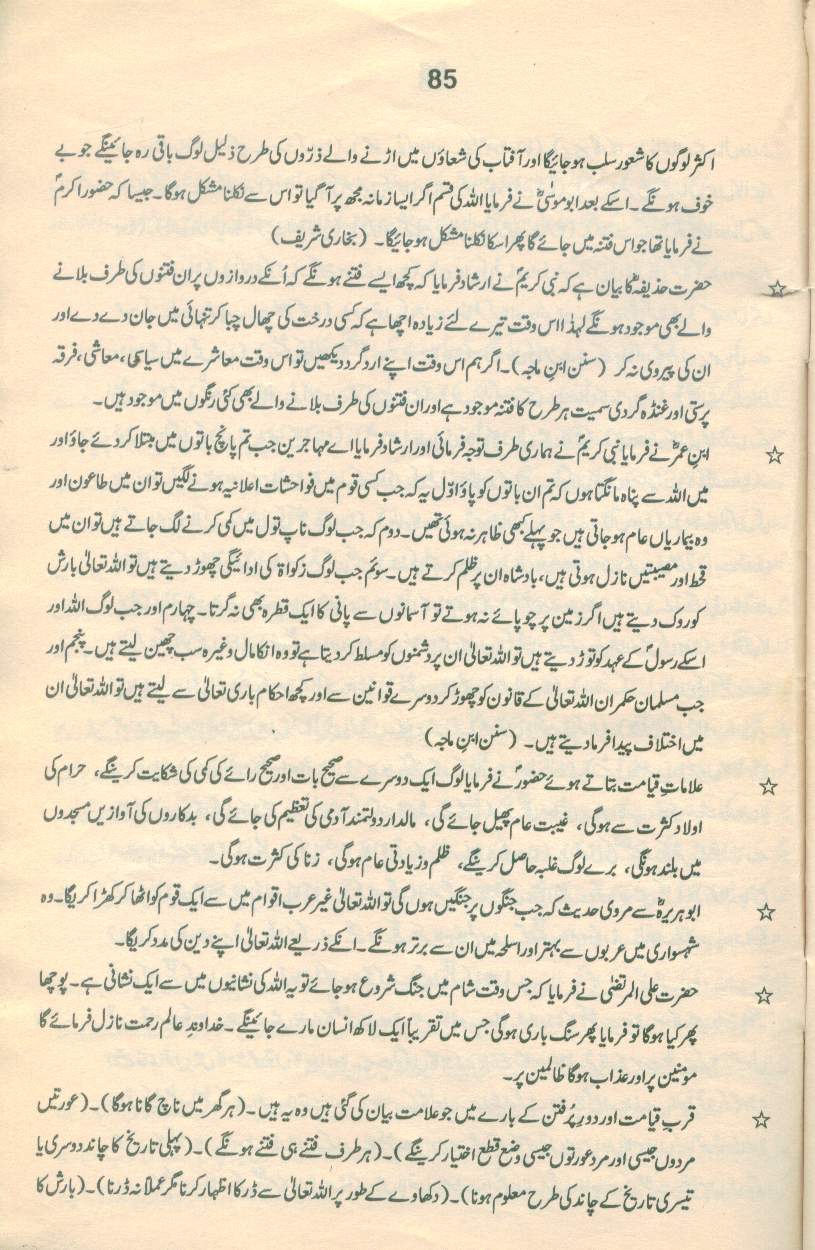 85
اکثر لوگوں کا شعور سلب ہوجائیگا اور آفتاب کی شعاؤں میں اڑنے والے ذرّوں کی طرح ذلیل لوگ باقی رہ جائینگے جو بے
خوف ہونگے۔ اسکے بعد ابو موسٰیؓ نے فرمایا اللہ کی قسم اگر ایسا زمانہ مجھ پر آ گیا تو اس سے نکلنا مشکل ہوگا۔ جیسا کہ حضور اکرمؐ
نے فرمایا تھا جو اس فتنہ میں جائے گا پھر اسکا نکلنا مشکل ہوجائیگا۔ (بخاری شریف)
☆ حضرت حذیفہؓ کا بیان ہے کہ نبی کریمؐ نے ارشاد فرمایا کہ کچھ ایسے فتنے ہونگے کہ اُنکے دروازوں پر ان فتنوں کی طرف بلانے
والے بھی موجود ہونگے لہٰذا اس وقت تیرے لئے زیادہ اچھا ہے کہ کسی درخت کی چھال چبا کر تنہائی میں جان دے دے اور
ان کی پیروی نہ کر (سنن ابنِ ماجہ)۔ اگر ہم اس وقت اپنے اردگرد دیکھیں تو اس وقت معاشرے میں سیاسی، معاشی، فرقہ
پرستی اور غنڈہ گردی سمیت ہر طرح کا فتنہ موجود ہے اور ان فتنوں کی طرف بلانے والے بھی کئی رنگوں میں موجود ہیں۔
☆ ابنِ عمرؓ نے فرمایا نبی کریمؐ نے ہماری طرف توجہ فرمائی اور ارشاد فرمایا اے مہاجرین جب تم پانچ باتوں میں مبتلا کر دئے جاؤ اور
میں اللہ سے پناہ مانگتا ہوں کہ تم ان باتوں کو پاؤ اوّل یہ کہ جب کسی قوم میں فواحشات اعلانیہ ہونے لگیں تو ان میں طاعون اور
وہ بیماریاں عام ہوجاتی ہیں جو پہلے کبھی ظاہر نہ ہوئی تھیں۔ دوم کہ جب لوگ ناپ تول میں کمی کرنے لگ جاتے ہیں تو ان میں
قحط اور مصیبتیں نازل ہوتی ہیں، بادشاہ ان پر ظلم کرتے ہیں۔ سوئم جب لوگ زکواۃ کی ادائیگی چھوڑ دیتے ہیں تو اللہ تعالیٰ بارش
کو روک دیتے ہیں اگر زمین پر چوپائے نہ ہوتے تو آسمانوں سے پانی کا ایک قطرہ بھی نہ گرتا۔ چہارم اور جب لوگ اللہ اور
اسکے رسولؐ کے عہد کو توڑ دیتے ہیں تو اللہ تعالیٰ ان پر دشمنوں کو مسلط کر دیتا ہے تو وہ انکا مال وغیرہ سب چھین لیتے ہیں۔ پنجم اور
جب مسلمان حکمران اللہ تعالیٰ کے قانون کو چھوڑ کر دوسرے قوانین سے اور کچھ احکام باری تعالیٰ سے لیتے ہیں تو اللہ تعالیٰ ان
میں اختلاف پیدا فرما دیتے ہیں۔ (سنن ابنِ ماجہ)
☆ علاماتِ قیامت بتاتے ہوئے حضورؐ نے فرمایا لوگ ایک دوسرے سے صحیح بات اور صحیح رائے کی کمی کی شکایت کرینگے، حرام کی
اولاد کثرت سے ہوگی، غیبت عام پھیل جائے گی، مالدار دولتمند آدمی کی تعظیم کی جائے گی، بدکاروں کی آوازیں مسجدوں
میں بلند ہونگی، برے لوگ غلبہ حاصل کرینگے، ظلم و زیادتی عام ہوگی، زنا کی کثرت ہوگی۔
☆ ابو ہریرہؓ سے مروی حدیث کہ جب جنگوں پر جنگیں ہوں گی تو اللہ تعالیٰ غیر عرب اقوام میں سے ایک قوم کو اٹھا کر کھڑا کریگا۔ وہ
شہسواری میں عربوں سے بہتر اور اسلحہ میں ان سے برتر ہونگے۔ انکے ذریعے اللہ تعالیٰ اپنے دین کی مدد کریگا۔
☆ حضرت علی المرتضٰی نے فرمایا کہ جس وقت شام میں جنگ شروع ہوجائے تو یہ اللہ کی نشانیوں میں سے ایک نشانی ہے۔ پوچھا
پھر کیا ہوگا تو فرمایا پھر سنگ باری ہوگی جس میں تقریباً ایک لاکھ انسان مارے جائینگے۔ خداوندِ عالم رحمت نازل فرمائے گا
مومنین پر اور عذاب ہوگا ظالمین پر۔
☆ قربِ قیامت اور دورِ پُرفتن کے بارے میں جو علامت بیان کی گئی ہیں وہ یہ ہیں۔ (ہر گھر میں ناچ گانا ہوگا)۔ (عورتیں
مردوں جیسی اور مرد عورتوں جیسی وضع قطع اختیار کرینگے)۔ (ہر طرف فتنے ہی فتنے ہونگے)۔ (پہلی تاریخ کا چاند دوسری یا
تیسری تاریخ کے چاند کی طرح معلوم ہونا)۔ (دکھاوے کے طور پر اللہ تعالیٰ سے ڈر کا اظہار کرنا مگر عملاً نہ ڈرنا)۔ (بارش کا